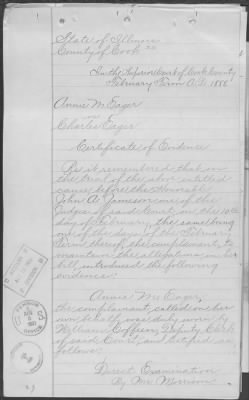 State of Illinois
County of Cook ss
In the Superior Court of Cook County
February Term A.D. 1888
Annie M. Eager
vs
Charles Eager
Certificate of Evidence
Be it remembered that on
the trial of the above entitled
cause, before the Honorable
John A. Jameson one of the
Judges of said Court, on the 10th
day of February, the same being
one of the days of the February
Term thereof, the complainants, to
maintain the allegations in her
bill introduced the following
evidence:
Annie M. Eager,
the complainant, called on her
own behalf, was duly sworn by
William Coffeen, Deputy Clerk
of said Court, and testified as
follows:
Direct Examination
By Mr. Morrison